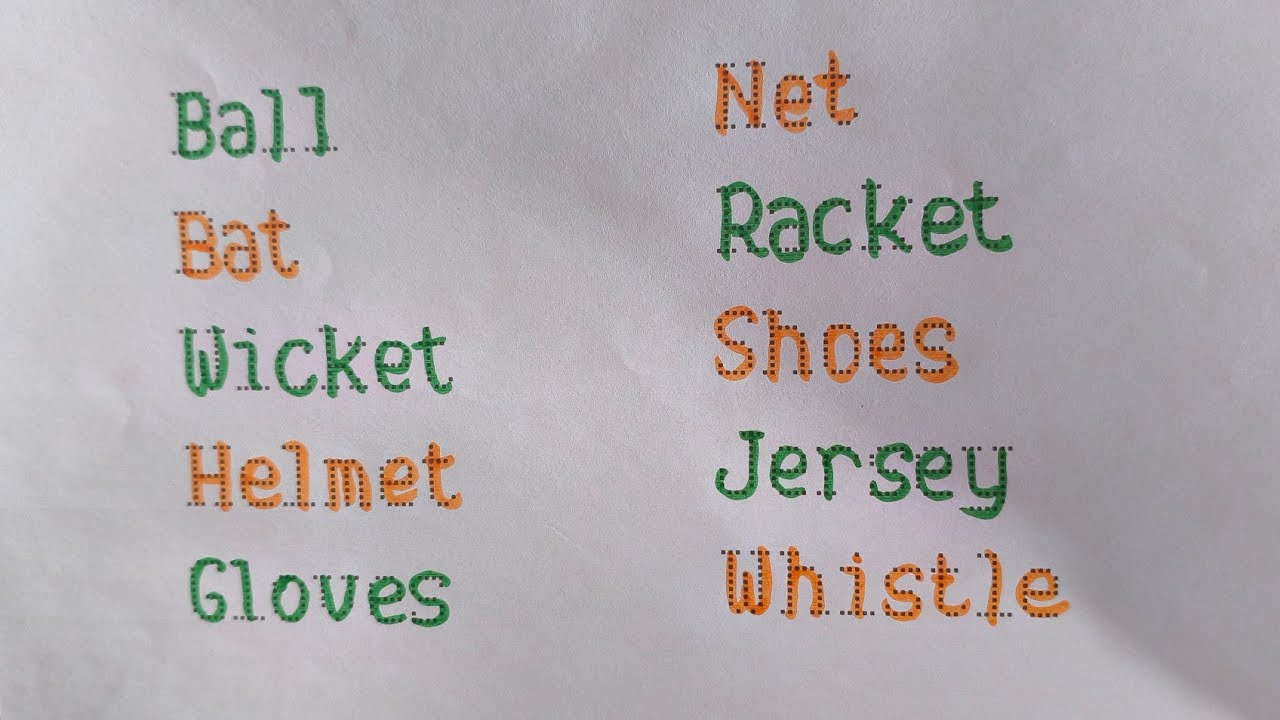 Ball
Bat
Wicket
Helmet
Gloves
Net
Racket
Shoes
Jersey
Whistle